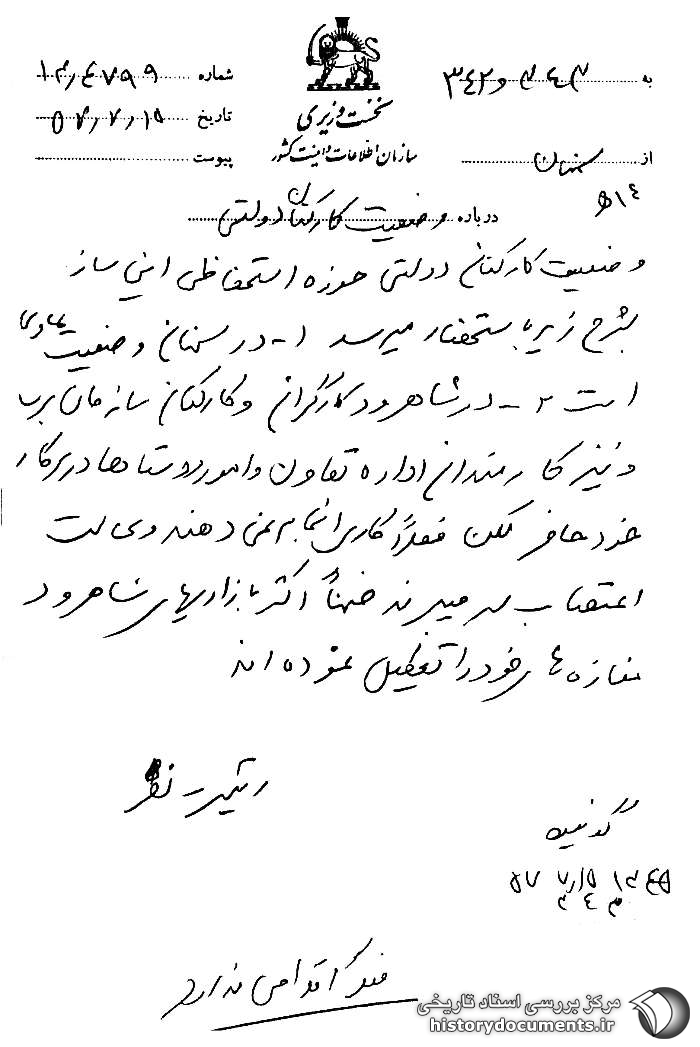 به ۳۴۳ و ۳۴۲
نخست وزیری
شماره
از سمنان
سازمان اطلاعات و امنیت کشور
تاریخ
پیوست
درباره وضعیت کارکنان دولتی
وضعیت کارکنان دولتی حوزه استحفاظی این ساز
بشرح زیر باستحضار میرسد ۱- در سمنان وضعیت عادی
است ۲- در شاهرود کارگران و کارکنان سازمان برق
و نیز کارمندان اداره تعاون و امور روستاها در سر کار
خود حاضر لکن فعلاً کاری انجام نمی دهند و بحالت
اعتصاب بسر میبرند ضمناً اکثر بازاریهای شاهرود
مغازه های خود را تعطیل نموده اند
گوینده
فعلاً اقدامی ندارد
مرکز بررسی اسناد تاریخی
historydocuments.ir